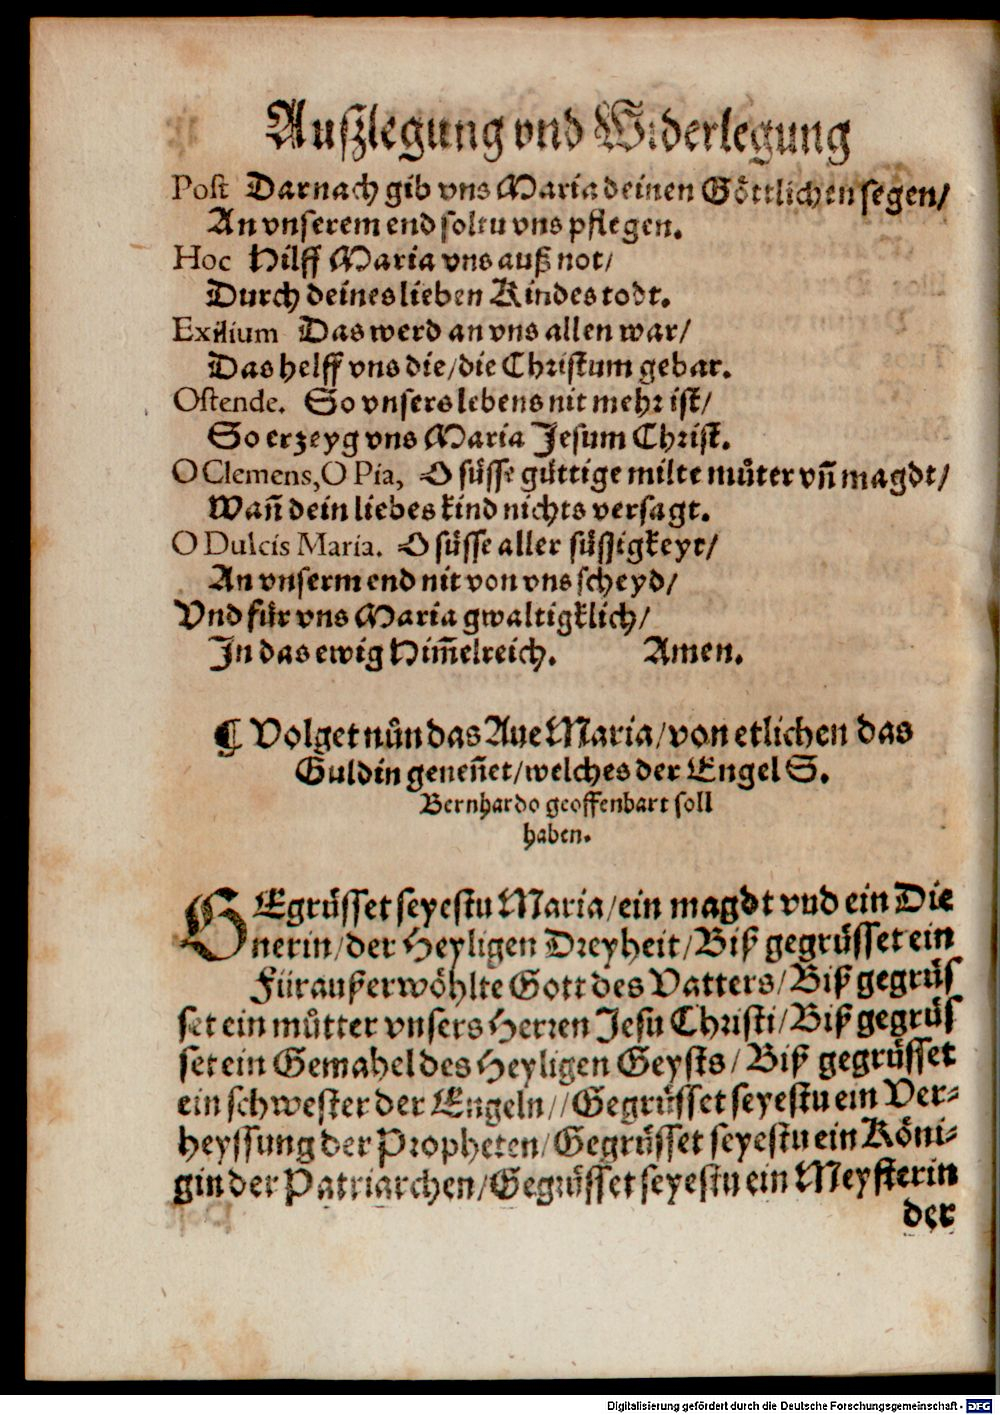 Auſzlegung vnd Widerlegung
Poſt Darnach gib vns Maria deinen Göttlichen ſegen/
An vnſerem end ſoltu vns pflegen.
Hoc Hilff Maria vns auß not/
Durch deines lieben Kindes todt.
Exilium Das werd an vns allen war/
Das helff vns die/die Chriſtum gebar.
Oſtende. So vnſers lebens nit mehr iſt/
So erzeyg vns Maria Jeſum Chriſt.
O Clemens,O Pia, O ſüſſe güttige milte muͦter vñ magdt/
Wañ dein liebes kind nichts verſagt.
O Dulcis Maria. O ſüſſe aller ſüſſigkeyt/
An vnſerm end nit von vns ſcheyd/
Vnd für vns Maria gwaltigklich/
In das ewig Him̃elreich. Amen.
¶ Volget nůn das Aue Maria/von etlichen das
Guldin geneñet/welches der Engel S.
Bernhardo geoffenbart ſoll
haben.
GEgrüſſet ſeyeſtu Maria/ein magdt vnd ein Die
nerin/der Heyligen Dreyheit/Biß gegrüſſet ein
Füraußerwöhlte Gott des Vatters/Biß gegrüſ
ſet ein muͦtter vnſers Herren Jeſu Chriſti/Biß gegrüſ
ſet ein Gemahel des Heyligen Geyſts/Biß gegrüſſet
ein ſchweſter der Engeln//Gegrüſſet ſeyeſtu ein Ver-
heyſſung der Propheten/Gegrüſſet ſeyeſtu ein Köni-
gin der Patriarchen/Gegrüſſet ſeyeſtu ein Meyſterin
der
Digitalisierung gefördert durch die Deutsche Forschungsgemeinschaft - DFG